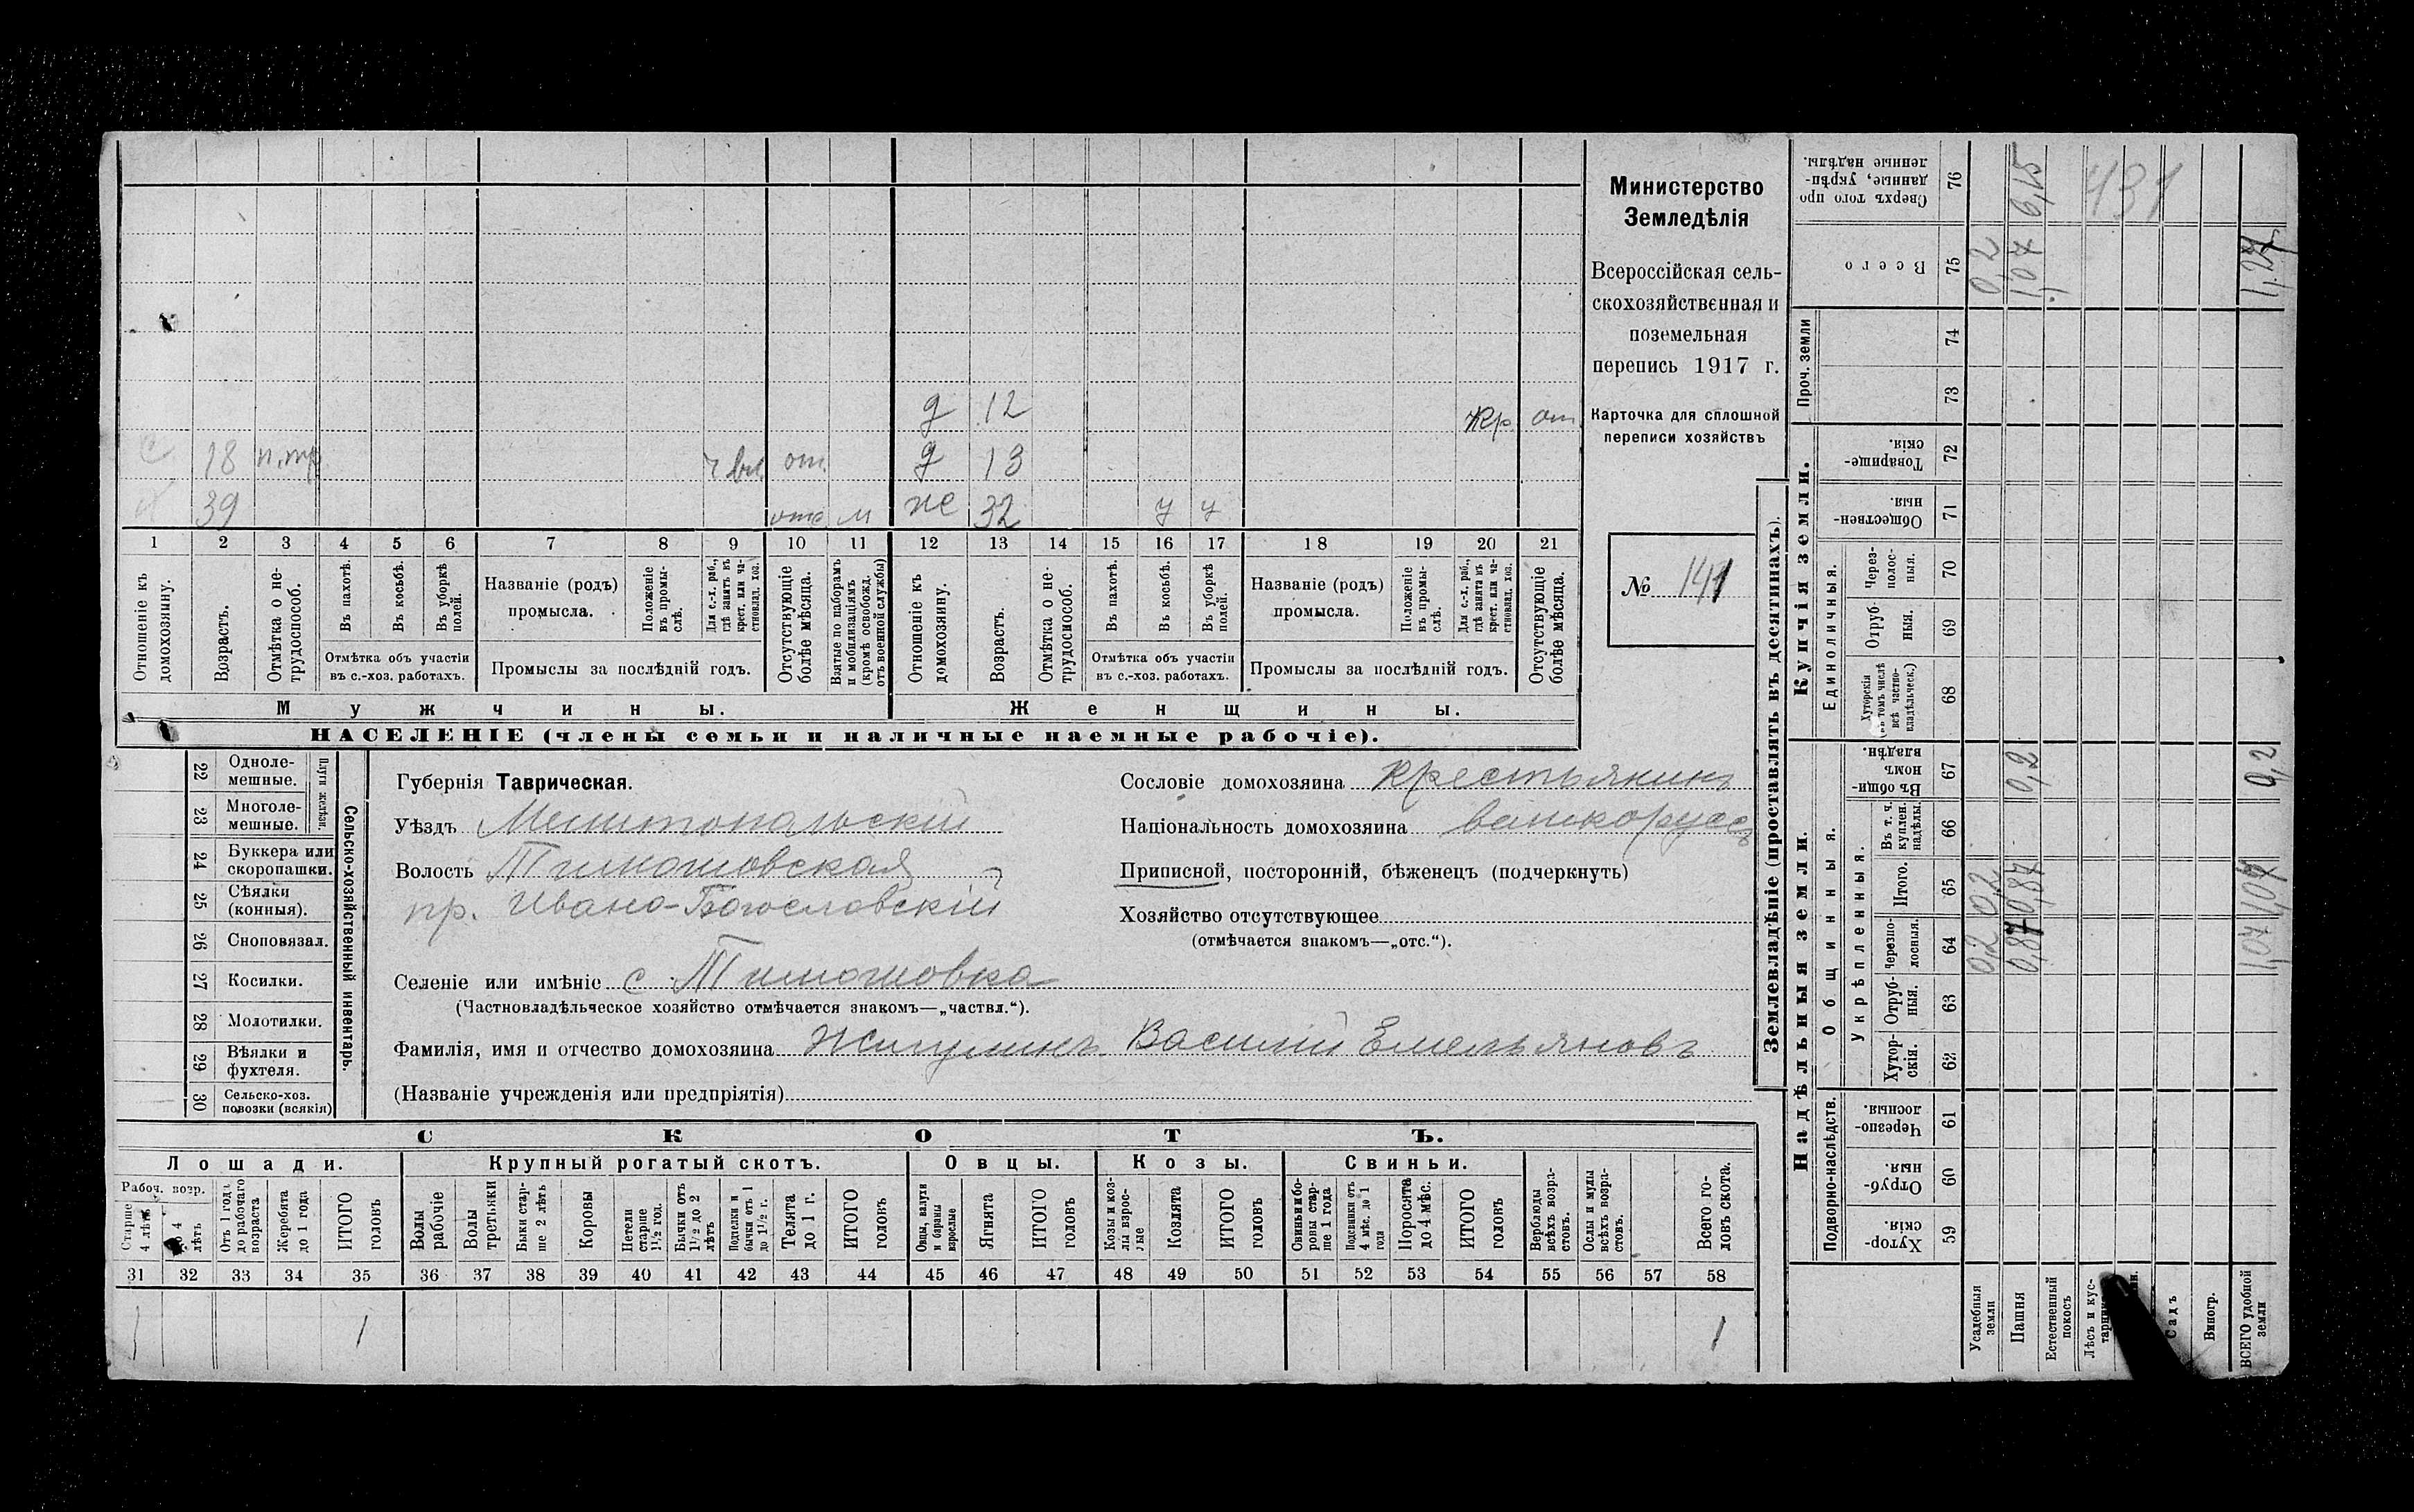 Министерство
Земледѣлія
Всероссійская сель-
скохозяйственная и
поземельная
перепись 1917 г.
Карточка для сплошной
переписи хозяйствъ
№ 141
д 12 Кр. от.
с 18 п.тр. ч вл. от. д 13
х 39 отс м же 32 у у
1 2 3 4 5 6 7 8 9 10 11 12 13 14 15 16 17 18 19 20 21
Отношеніе къ домохозяину.
Возрастъ.
Отмѣтка о не-трудоспособ.
Въ пахотѣ.
Въ косьбѣ.
Въ уборкѣ полей.
Отмѣтка объ участіи
въ с.-хоз. работахъ.
Названіе (родъ)
промысла.
Положеніе въ промы-слѣ.
Для с.-х. раб., гдѣ занятъ въ крест. или ча-стновлад. хоз.
Промыслы за послѣдній годъ.
Отсутствующіе болѣе мѣсяца.
Взятые по наборамъ и мобилизаціямъ (кромѣ освобожд. отъ военной службы)
Отношеніе къ домохозяину.
Возрастъ.
Отмѣтка о не-трудоспособ.
Въ пахотѣ.
Въ косьбѣ.
Въ уборкѣ полей.
Отмѣтка объ участіи
въ с.-хоз. работахъ.
Названіе (родъ)
промысла.
Положеніе въ промы-слѣ.
Для с.-х. раб., гдѣ занята въ крест. или ча-стновлад. хоз.
Промыслы за послѣдній годъ.
Отсутствующіе болѣе мѣсяца.
Мужчины. Женщины.
НАСЕЛЕНІЕ (члены семьи и наличные наемные рабочіе).
Сельско-хозяйственный инвентарь.
Плуги желѣзн.
22 Одноле-мешные.
23 Многоле-мешные.
24 Буккера или скоропашки.
25 Сѣялки (конныя).
26 Сноповязал.
27 Косилки.
28 Молотилки.
29 Вѣялки и фухтеля.
30 Сельско-хоз. повозки (всякія)
Губернія Таврическая.
Уѣздъ Мелитопольскій
Волость Тимошовская
пр. Ивано-Богословскій
Селеніе или имѣніе с. Тимошовка
(Частновладѣльческое хозяйство отмѣчается знакомъ—„частвл.“).
Фамилія, имя и отчество домохозяина Жигулинъ Василій Емельяновъ
(Названіе учрежденія или предпріятія)
Сословіе домохозяина Крестьянинъ
Національность домохозяина великоруссъ
Приписной, посторонній, бѣженецъ (подчеркнуть)
Хозяйство отсутствующее
(отмѣчается знакомъ—„отс.“).
СКОТЪ.
Лошади. Крупный рогатый скотъ. Овцы. Козы. Свиньи.
Рабоч. возр.
Старше 4 лѣтъ
До 4 лѣтъ
Отъ 1 года до рабочаго возраста
Жеребята до 1 года
ИТОГО головъ
Волы рабочіе
Волы третьяки
Быки стар-ше 2 лѣтъ
Коровы
Нетели старше 1 1/2 год.
Бычки отъ 1 1/2 до 2 лѣтъ
Подтелки и бычки отъ 1 до 1 1/2 г.
Телята до 1 г.
ИТОГО головъ
Овцы, валухи и бараны взрослые
Ягнята
ИТОГО головъ
Козы и коз-лы взрос-лые
Козлята
ИТОГО головъ
Свиньи и бо-ровы стар-ше 1 года
Подсвинки отъ 4 мѣс. до 1 года
Поросята до 4 мѣс.
ИТОГО головъ
Верблюды всѣхъ возра-стовъ.
Ослы и мулы всѣхъ возра-стовъ.
Всего го-ловъ скота.
31 32 33 34 35 36 37 38 39 40 41 42 43 44 45 46 47 48 49 50 51 52 53 54 55 56 57 58
1 1 1
Землевладѣніе (проставлять въ десятинахъ).
Купчія земли.
Надѣльныя земли.
Сверхъ того про-данные, укрѣп-ленные надѣлы. 76 6,15
431
Всего 75 0,2 1,07 1,27
Проч. земли 74
73
Товарище-скія. 72
Обществен-ныя. 71
Единоличныя.
Через-полос-ныя. 70
Отруб-ныя. 69
Хуторскія (въ томъ числѣ всѣ частно-владѣльческ.) 68
Общинныя.
Въ общи-номъ владѣн. 67 0,2 0,2
Укрѣпленныя.
Въ т. ч. куплен. надѣлы. 66
Итого. 65 0,2 0,87 1,07
Черезпо-лосныя. 64 0,2 0,87 1,07
Отруб-ныя. 63
Хутор-скія. 62
Подворно-наслѣдств.
Черезпо-лосныя. 61
Отруб-ныя. 60
Хутор-скія. 59
Усадебныя земли
Пашня
Естественный покосъ
Лѣсъ и кус-
Садъ
Виногр.
ВСЕГО удобной земли